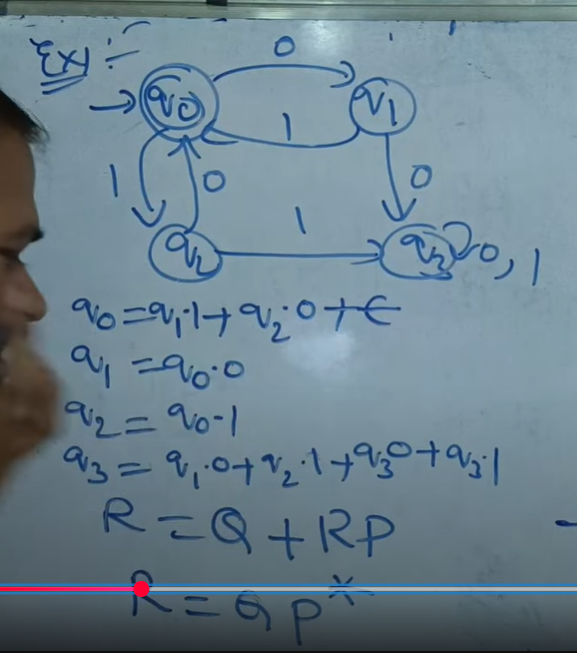 Ex:-
0
q0 q1
1
1 0 0
1
q2 q3 0,1
q0 = q1.1 + q2.0 + ϵ
q1 = q0.0
q2 = q0.1
q3 = q1.0 + q2.1 + q3 0 + q3.1
R = Q + RP
R = QP*